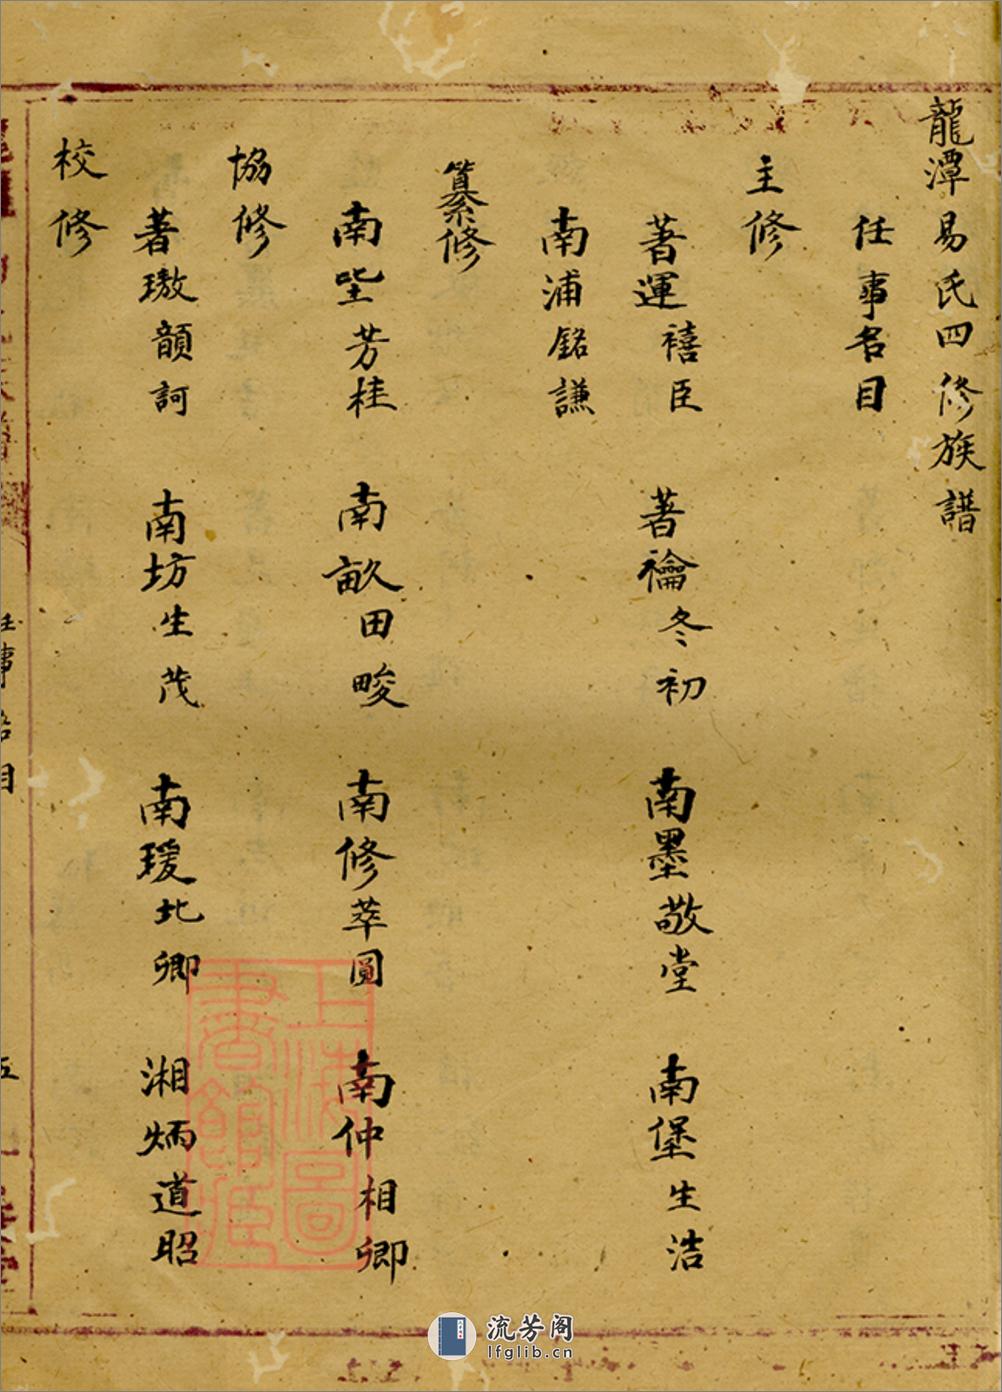 龍潭易氏四修族譜
任事名目
主修
著運禧臣 著禴冬初 南墨敬堂 南堡生洁
南浦銘謙
纂修
南坒芳桂 南畝田畯 南修萃圓 南仲相卿
協修
著璈韻訶 南坊生茂 南瑗北卿 湘炳道昭
校修
任事名目
五
上海圖書館藏
流芳阁
lfglib.cn